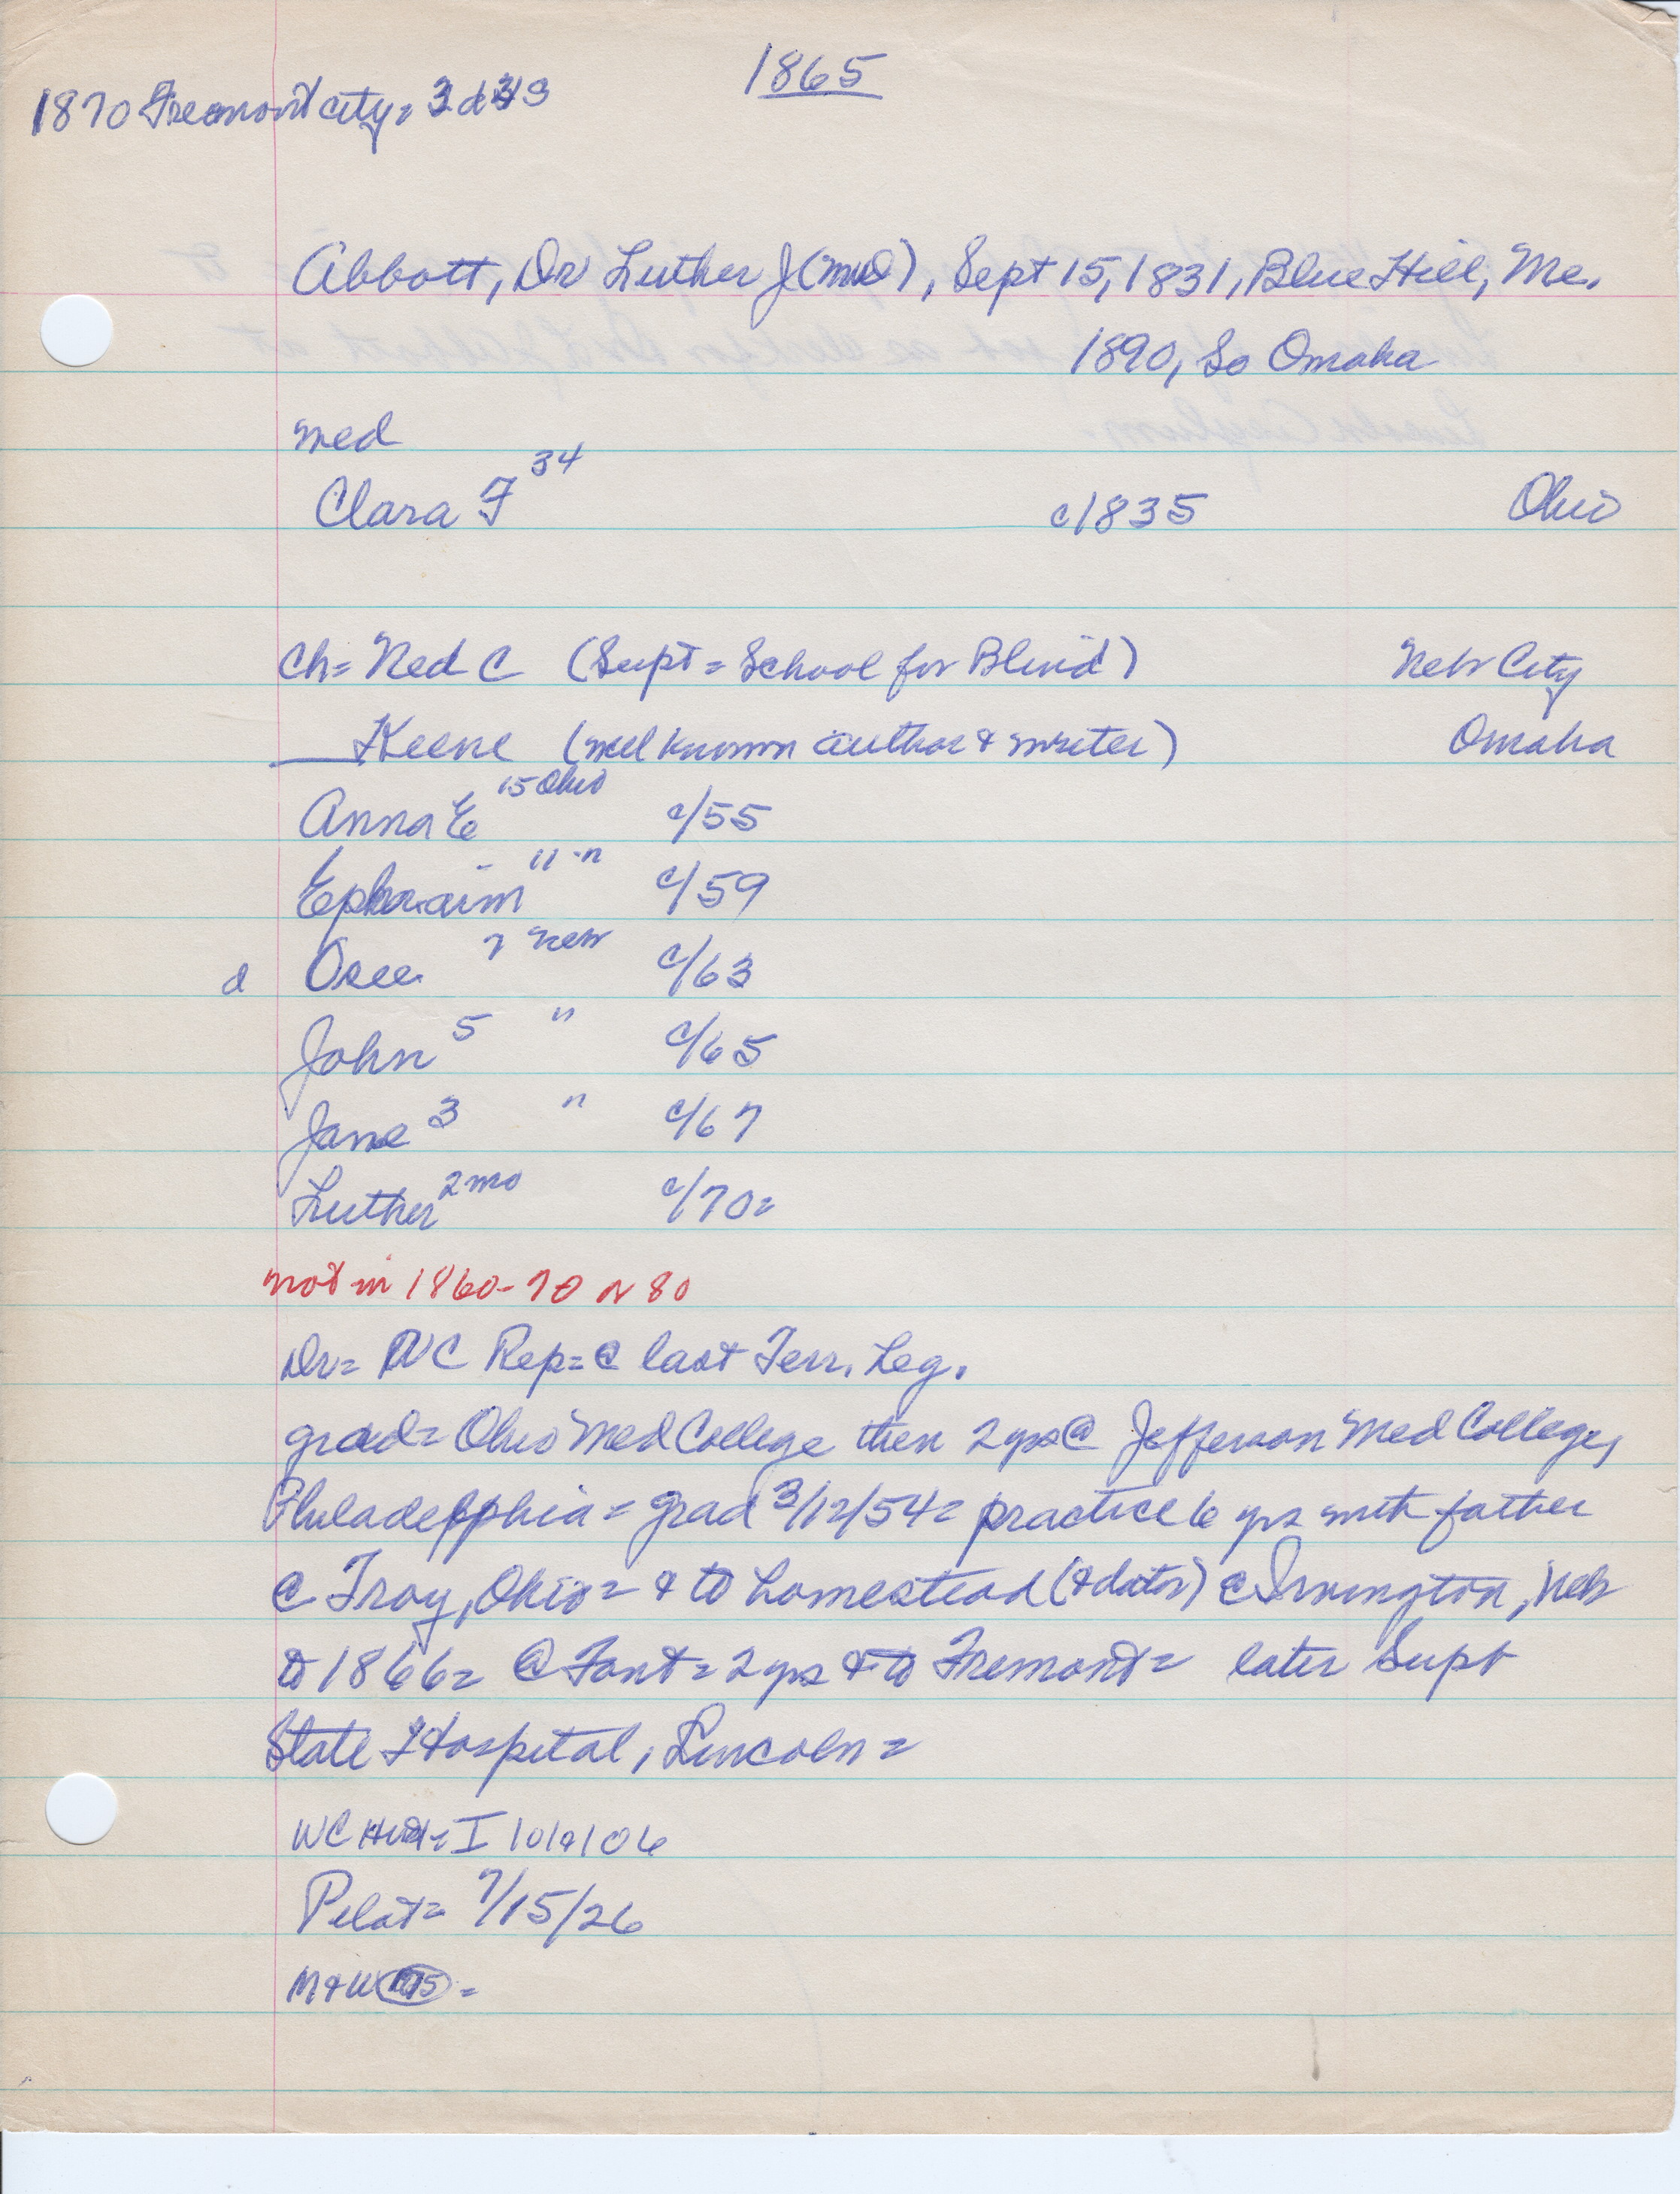 1865
1870 Freemont City,
Abbott, Dr Luther J (md), Sept 15, 1831, Blue Hill, Me.
1890, So Omaha
med
Clara F 34 c/1835 Ohio
Ch= Ned C (Supt = School for Blind) Nebr City
Keene (well known author & writer) Omaha
Anna E 15 Ohio c/55
Ephraim 11 " c/59
d Osee 7 Nebr c/63
John 5 " c/65
Jane 3 " c/67
Luther 2 mo c/70=
not in 1860-70 or 80
Dr= WC Rep= @ last Terr. Leg.
grad= Ohio Med College then 2 yrs @ Jefferson Med College,
Philadelphia = grad 3/12/54= practice 6 yrs with father
@ Troy, Ohio= & to homestead (& dctor) @ Irvington, Nebr
to 1866= @ Font= 2 yrs & to Fremont= later Supt
State Hospital, Lincoln=
WC I 101&106
Pilot= 7/15/26
M&W =